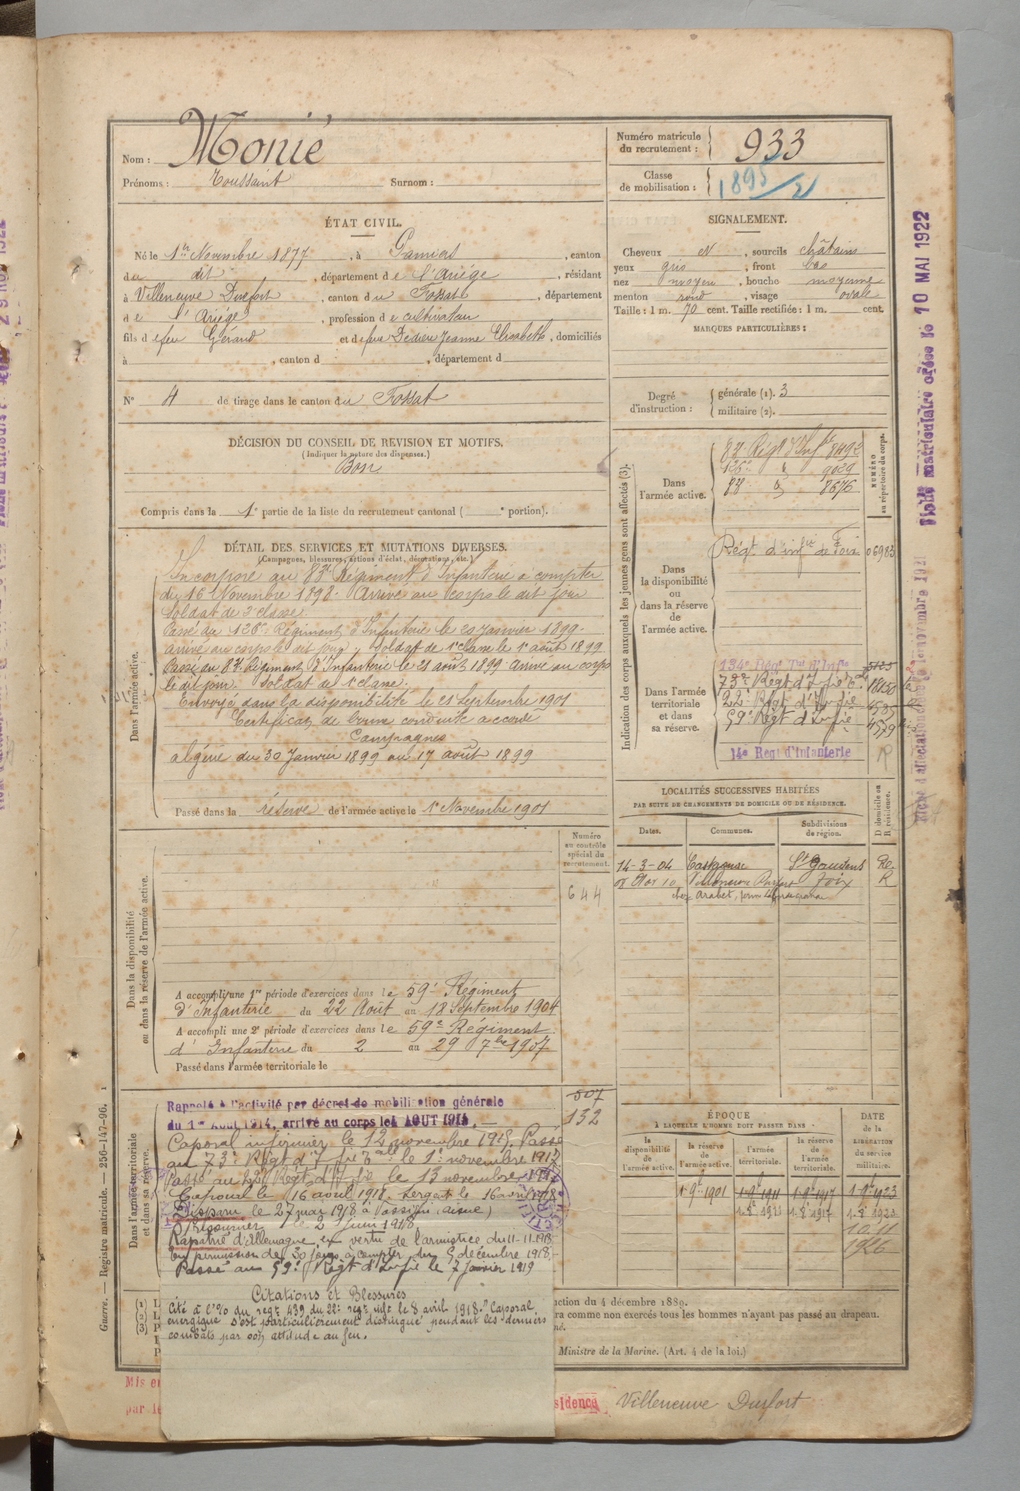 Nom : Monié
Prénoms : Toussaint Surnom :
Numéro matricule du recrutement : 933
Classe de mobilisation : 1895/2
ÉTAT CIVIL.
Né le 1er Novembre 1877, à Pamiers, canton
du dit, département de l'Ariège, résidant
à Villeneuve Durfort, canton du Fossat, département
de l'Ariège, profession de cultivateur
fils de feu Gérard et de feue Dedieu Jeanne Elisabeth, domiciliés
à , canton d , département d
N° 4 de tirage dans le canton du Fossat
SIGNALEMENT.
Cheveux et , sourcils châtains
yeux gris , front bas
nez moyen , bouche moyenne
menton rond , visage ovale
Taille : 1 m. 70 cent. Taille rectifiée : 1 m. cent.
MARQUES PARTICULIÈRES :
Degré d'instruction : générale (1). 3
militaire (2).
DÉCISION DU CONSEIL DE REVISION ET MOTIFS.
(Indiquer la nature des dispenses.)
Bon
Compris dans la 1e partie de la liste du recrutement cantonal ( e portion).
DÉTAIL DES SERVICES ET MUTATIONS DIVERSES.
(Campagnes, blessures, actions d'éclat, décorations, etc.)
Dans l'armée active.
Incorporé au 83e Régiment d'Infanterie à compter
du 16 Novembre 1898. Arrivé au corps le dit jour
Soldat de 2e classe.
Passé au 126e Régiment d'Infanterie le 20 Janvier 1899.
arrivé au corps le dit jour, Soldat de 1e classe le 1e août 1899
Passé au 83e Régiment d'Infanterie le 21 août 1899 arrivé au corps
le dit jour. Soldat de 1e classe.
Envoyé dans la disponibilité le 21 Septembre 1901
Certificat de bonne conduite accordé
Campagnes
Algérie du 30 Janvier 1899 au 17 août 1899
Passé dans la réserve de l'armée active le 1e Novembre 1901
Indication des corps auxquels les jeunes gens sont affectés (3).
NUMÉRO au répertoire du corps.
Dans l'armée active.
83e Régt d'Infie 8492
126e d 9029
83e d 8676
Dans la disponibilité ou dans la réserve de l'armée active.
Régt d'infie de Foix 06983
Dans l'armée territoriale et dans sa réserve.
134e Régt Tal d'Infie
73e Régt d'Ifie Tale 18150
22e Régt d'Infie
59e Régt d'Infie
14e Régt d'Infanterie R
LOCALITÉS SUCCESSIVES HABITÉES
PAR SUITE DE CHANGEMENTS DE DOMICILE OU DE RÉSIDENCE.
Dates. Communes. Subdivisions de région. D domicile ou R résidence.
14-3-04 St Gaudens Re
Foix R
Numéro au contrôle spécial du recrutement.
644
Dans la disponibilité ou dans la réserve de l'armée active.
A accompli une 1re période d'exercices dans le 59e Régiment
d'Infanterie du 22 Août au 18 Septembre 1904
A accompli une 2e période d'exercices dans le 59e Régiment
d'Infanterie du 2 au 29 7bre 1907
Passé dans l'armée territoriale le
507
132
Dans l'armée territoriale et dans sa réserve.
Rappelé à l'activité par décret de mobilisation générale
du 1er Août 1914, arrivé au corps le 4 AOUT 1914.
Caporal infirmier le 12 novembre 1915. Passé
au 73e Régt d'Ifie Tale le 1e novembre 1917
Passé au 22e Régt d'Ifie le 13 novembre 1917
Caporal le 16 avril 1918. Sergent le 16 avril 1918
Disparu le 27 mai 1918 à Passigny (Aisne)
Prisonnier le 2 Juin 1918
Rapatrié d'Allemagne, en vertu de l'armistice du 11-11-1918
En permission de 30 jours à compter du 9 décembre 1918.
Passé au 59e Régt d'Infie le 7 Janvier 1919
Citations et Blessures
Cité à l'O/ du regt 439 du 22e regt inf le 8 avril 1918. "Caporal
énergique s'est particulièrement distingué pendant les derniers
combats par son attitude au feu.
ÉPOQUE
À LAQUELLE L'HOMME DOIT PASSER DANS
la disponibilité de l'armée active. la réserve de l'armée active. l'armée territoriale. la réserve de l'armée territoriale.
DATE de la LIBÉRATION du service militaire.
1-9-1901 1-9-1911 1-9-1917 1-9-1923
10-11
1926
ction du 4 décembre 1889.
ra comme non exercés tous les hommes n'ayant pas passé au drapeau.
Ministre de la Marine. (Art. 4 de la loi.)
Guerre. — Registre matricule. — 256-147-96.
Mis en
par le
sidence Villeneuve Durfort
Fiche matriculaire créée le 10 MAI 1922